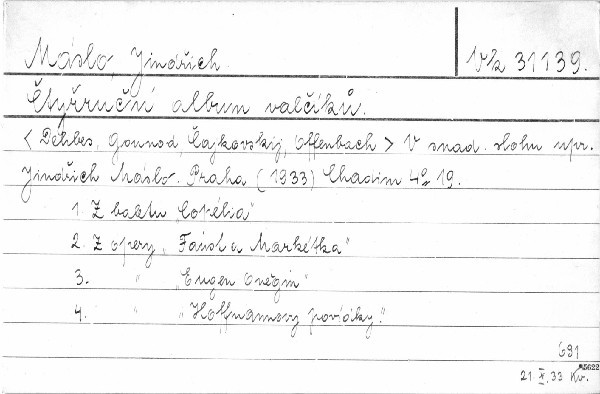 Máslo, Jindřich. Vk 31139.
Čtyřruční album valčíků.
< Délibes, Gounod, Čajkovskij, Offenbach > V snad. slohu upr.
Jindřich Máslo. Praha (1933) Chadim 4° 19.
1. Z baletu „Copélia"
2. Z opery „Faust a Markétka"
3. " „Eugen Oněgin"
4. " „Hoffmannovy povídky."
691
21 X. 33 Kv.
5622